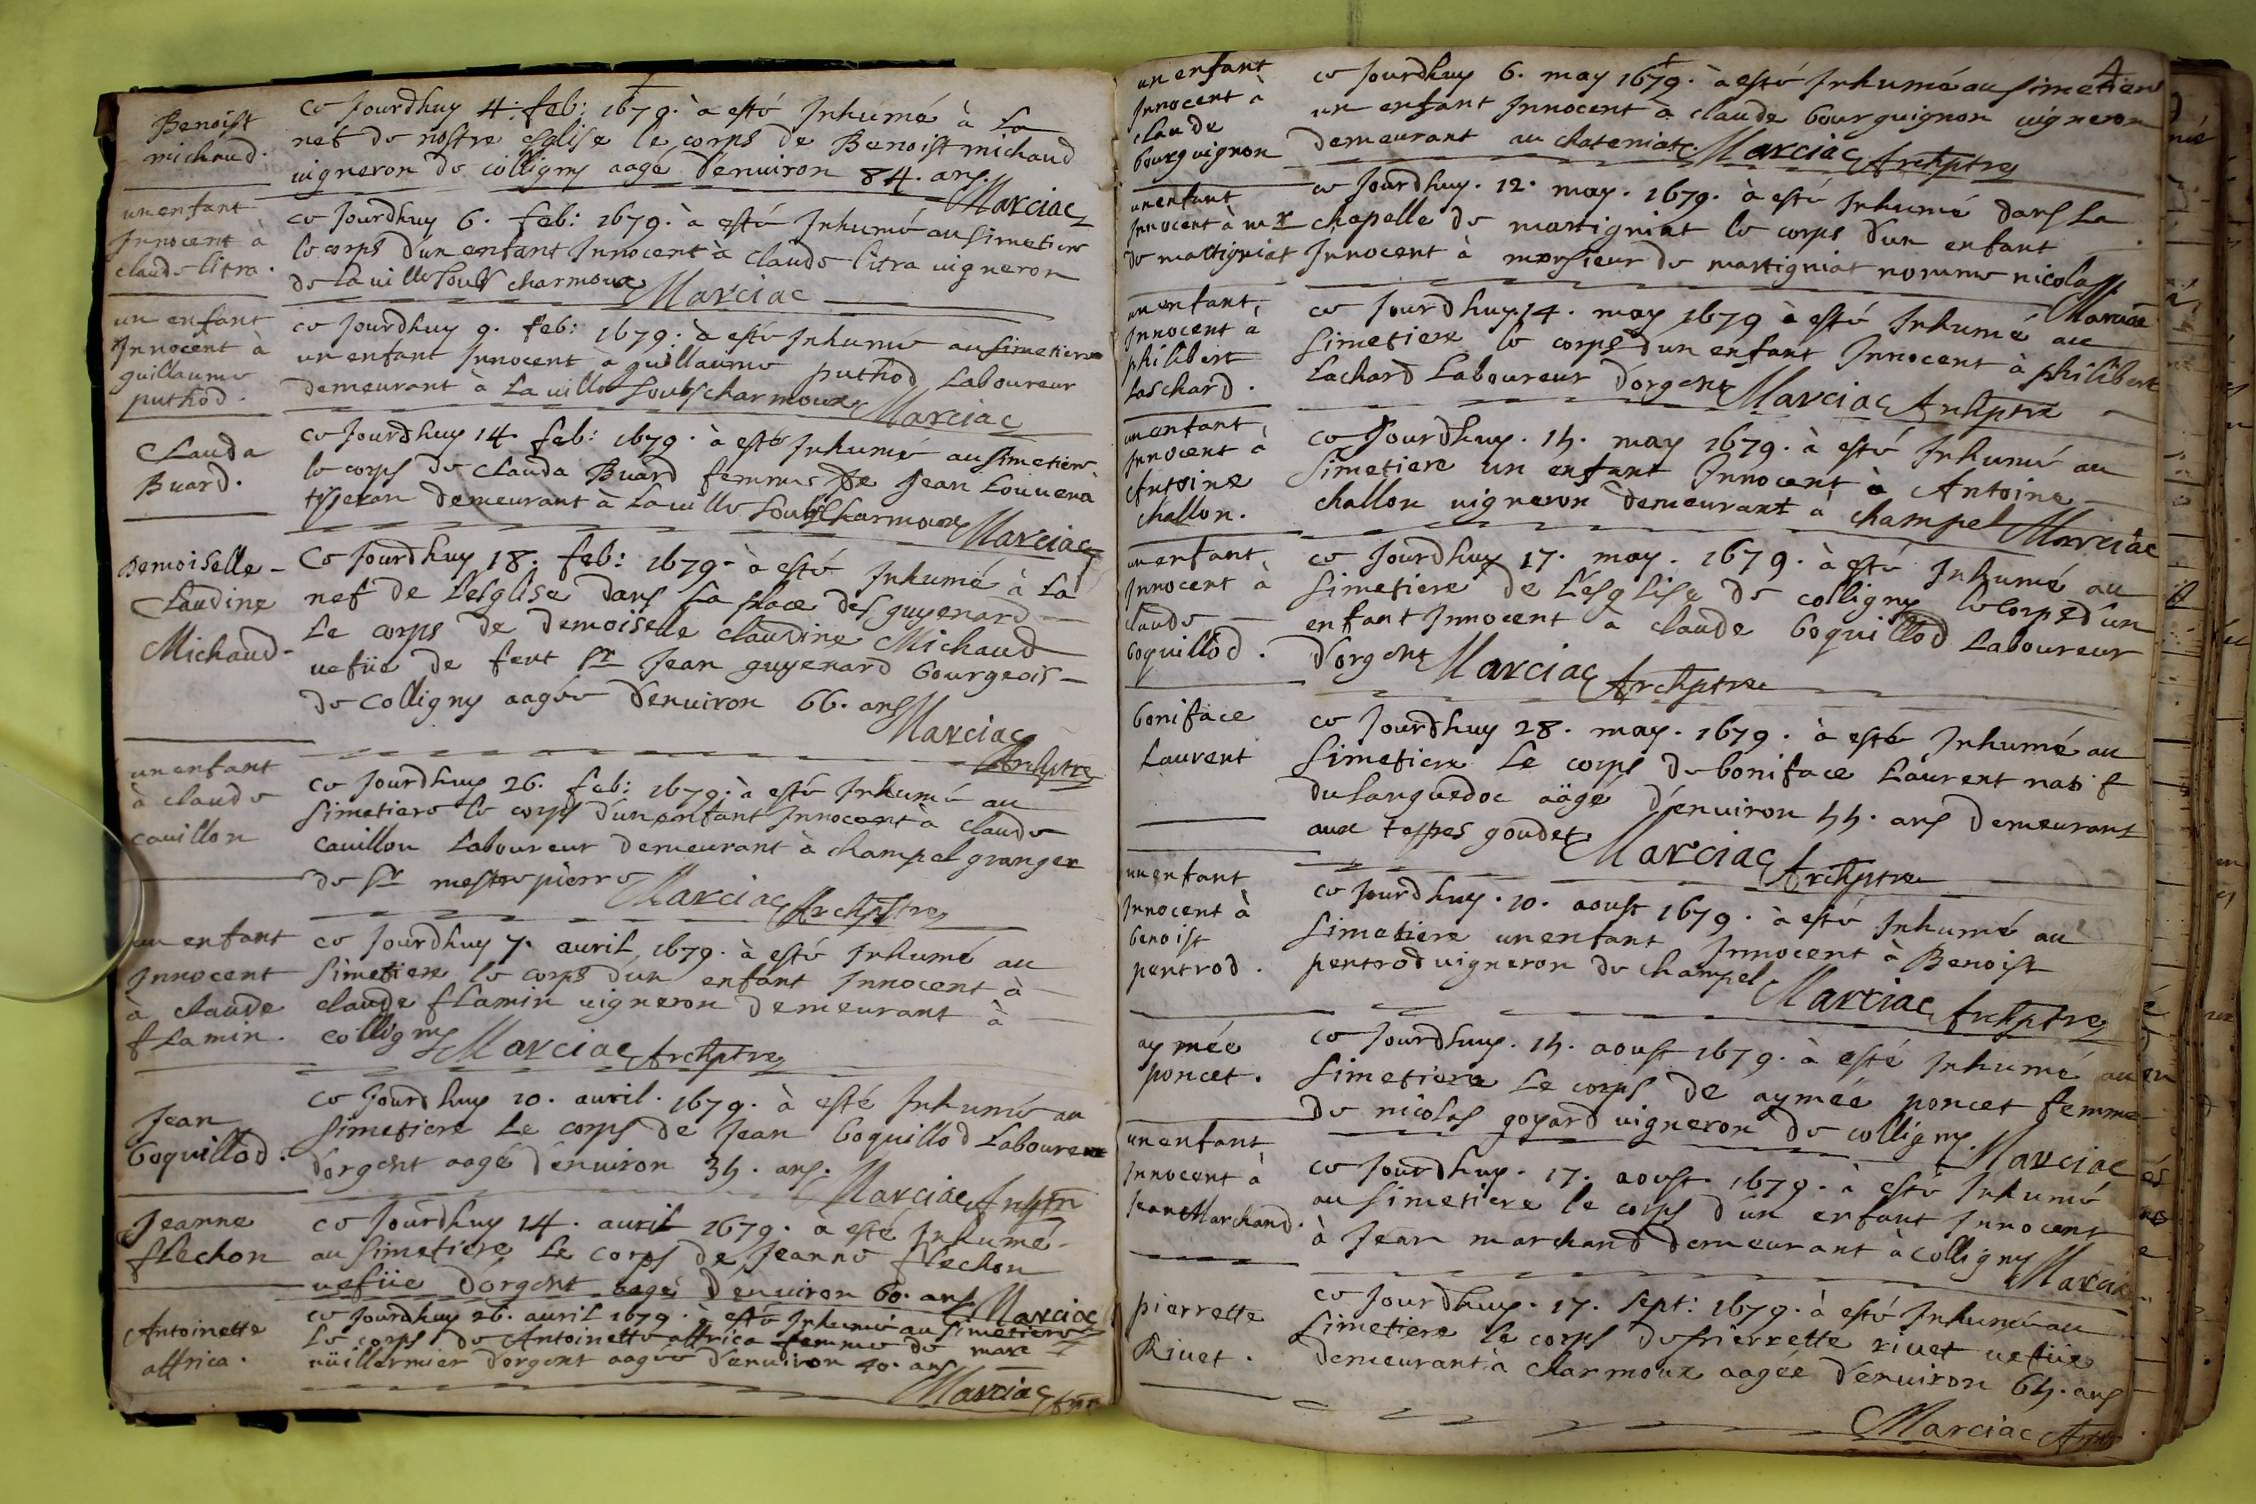 Benoist
michaud.
ce Jourdhuy 4. feb: 1679. à esté Inhumé à La
nef de nostre esglise le corps de Benoist michaud
uigneron de colligny aagé d'enuiron 84. ans.
Marciac
un enfant
Innocent à
claude litra.
ce Jourdhuy 6. feb: 1679. à esté Inhumé au simetiere
le corps d'un enfant Innocent à claude litra uigneron
de la uille soubs charmoux
Marciac
un enfant
Innocent à
guillaume
puthod.
ce Jourdhuy 9. feb: 1679. à esté Inhumé au simetiere
un enfant Innocent a guillaume puthod Laboureur
demeurant à La uille soubs charmoux
Marciac
Clauda
Buard.
ce Jourdhuy 14 feb: 1679. à esté Inhumé au simetiere
le corps de clauda Buard femme De Jean
tisseran demeurant à La uille soubs charmoux
Marciac
Demoiselle
Claudine
Michaud
Ce Jourdhuy 18. feb: 1679. à esté Inhumé à La
nef de L'esglise dans La place des guyenard
Le corps de demoiselle claudine Michaud
uefüe de feut Sr Jean guyenard bourgeois
de Colligny aagée d'enuiron 66. ans
Marciac
Archptre
un enfant
à claude
cauillon
ce Jourdhuy 26. feb: 1679. à esté Inhumé au
simetiere le corps d'un enfant Innocent à claude
cauillon Laboureur demeurant à champel granger
de Sr mestre pierre
Marciac Archptre
un enfant
Innocent
à claude
flamin.
ce Jourdhuy 7. auril 1679. à esté Inhumé au
simetiere le corps d'un enfant Innocent à
claude flamin uigneron demeurant à
colligny
Marciac Archptre
Jean
boquillod.
ce Jourdhuy 10. auril. 1679. à esté Inhumé au
simetiere Le corps de Jean boquillod Laboureur
d'orgent aagé d'enuiron 35. ans.
Marciac
Jeanne
flechon
ce Jourdhuy 14. auril 1679. a esté Inhumé
au simetiere Le corps de Jeanne flechon
uefüe d'orgent aagé d'enuiron 60. ans
Marciac
Antoinette
affrica.
ce Jourdhuy 26. auril 1679. à esté Inhumé au simetiere
Le corps de Antoinette affrica femme de marc
uüillermier d'orgent aagée d'enuiron 40. ans
Marciac
4
un enfant
Innocent à
claude
bourguignon
ce Jourdhuy 6. may 1679. à esté Inhumé au simetiere
un enfant Innocent à claude bourguignon uigneron
demeurant au chateniat.
Marciac Archptre
un enfant
Innocent à mr
de martigniat
ce Jourdhuy. 12. may. 1679. à esté Inhumé dans La
chapelle de martigniat le corps d'un enfant
Innocent à monsieur de martigniat nomme nicolas.
Marciac
un enfant
Innocent à
philibert
Laschard.
ce Jourdhuy 14. may 1679 à esté Inhumé au
simetiere le corps d'un enfant Innocent à philibert
Lachard Laboureur d'orgent
Marciac Archptre
un enfant
Innocent à
Antoine
challon.
ce Jourdhuy. 15. may 1679. à esté Inhumé au
simetiere un enfant Innocent à Antoine
challon uigneron demeurant à champel
Marciac
un enfant
Innocent à
claude
boquillod.
ce Jourdhuy 17. may. 1679. à esté Inhumé au
simetiere de L'esglise de colligny le corps d'un
enfant Innocent à claude boquillod Laboureur
d'orgent
Marciac Archptre
boniface
Laurent
ce Jourdhuy 28. may. 1679. à esté Inhumé au
simetiere Le corps de boniface Laurent natif
du Languedoc aagé d'enuiron 55. ans demeurant
aux teppes goudet
Marciac Archptre
un enfant
Innocent à
benoist
pentrod.
ce Jourdhuy. 10. aoust 1679. à esté Inhumé au
simetiere un enfant Innocent à Benoist
pentrod uigneron de champel
Marciac Archptre
aymée
poncet.
ce Jourdhuy. 15. aoust 1679. à esté Inhumé au
simetiere Le corps de aymée poncet femme
de nicolas goyard uigneron de colligny.
Marciac
un enfant
Innocent à
Jean Marchand.
ce Jourdhuy. 17. aoust. 1679. à esté Inhumé
au simetiere le corps d'un enfant Innocent
à Jean marchand demeurant à colligny
Marciac
pierrette
Riuet.
ce Jourdhuy. 17. sept: 1679. à esté Inhumé au
simetiere le corps de pierrette riuet uefüe
demeurant à charmoux aagee d'enuiron 65. ans
Marciac